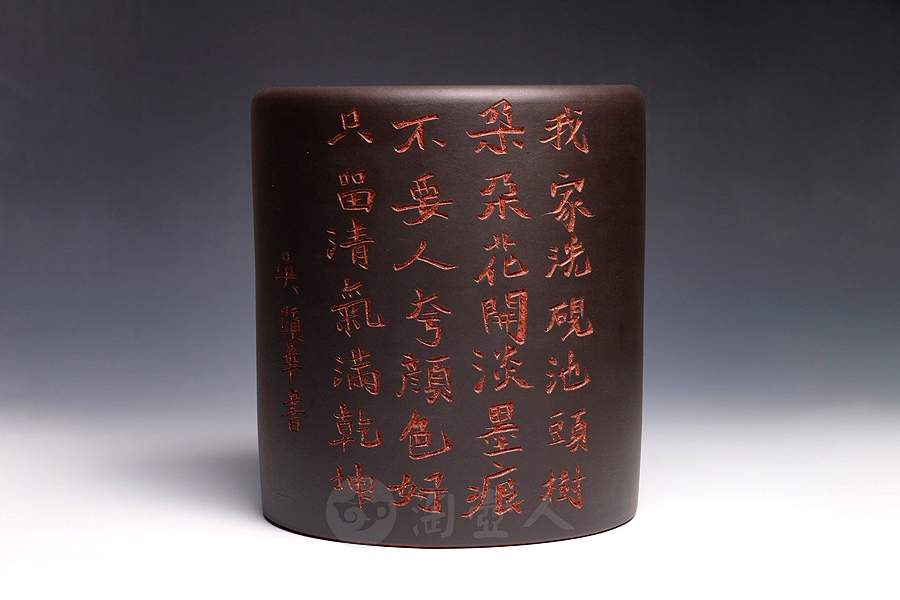 我家洗硯池頭樹
朵朵花開淡墨痕
不要人夸顏色好
只留清氣滿乾坤
吳頤華書
淘壺人